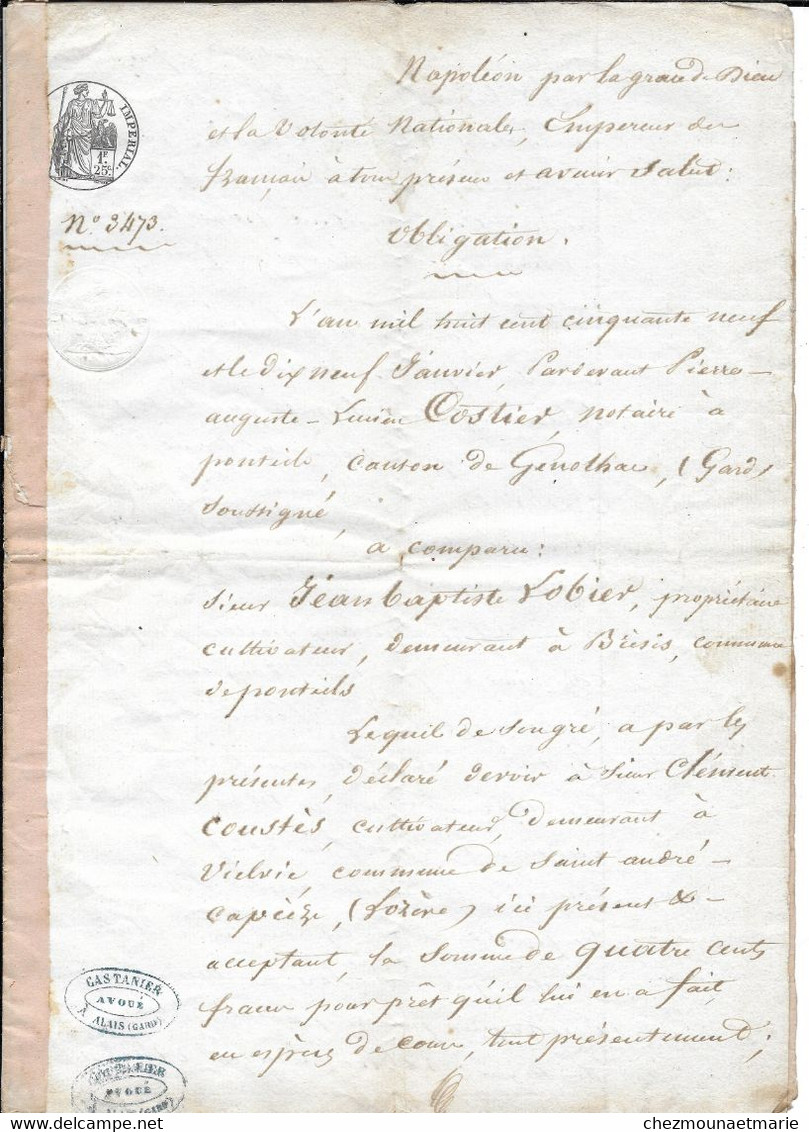 Napoléon par la grace de Dieu
IMPERIAL
1F
25c
et la Volonté Nationale, Empereur des
français à tous présens et avenir Salut:
No 3473.
Obligation.
L'an mil huit cent cinquante neuf
et le dix neuf Janvier, Pardevant Pierre-
auguste-Lucien Costier, notaire à
ponteils, canton de Génolhac, (Gard)
Soussigné,
a comparu:
Sieur Jéan baptiste Lobier, propriétaire
cultivateur, demeurant à Brésis, commune
de ponteils
Lequel de son gré, a par les
présentes, déclaré devoir à Sieur Clément
Coustès, cultivateur, demeurant à
Vielvie, commune de Saint andré-
Capcèze, (Lozère) ici présent &-
acceptant, la Somme de quatre cents
francs pour prêt qu'il lui en a fait,
en espèces de cours, tout présentement;
CASTANIER
AVOUÉ
A ALAIS (GARD)
CASTANIER
AVOUÉ
A ALAIS (GARD)
chezmounaetmarie